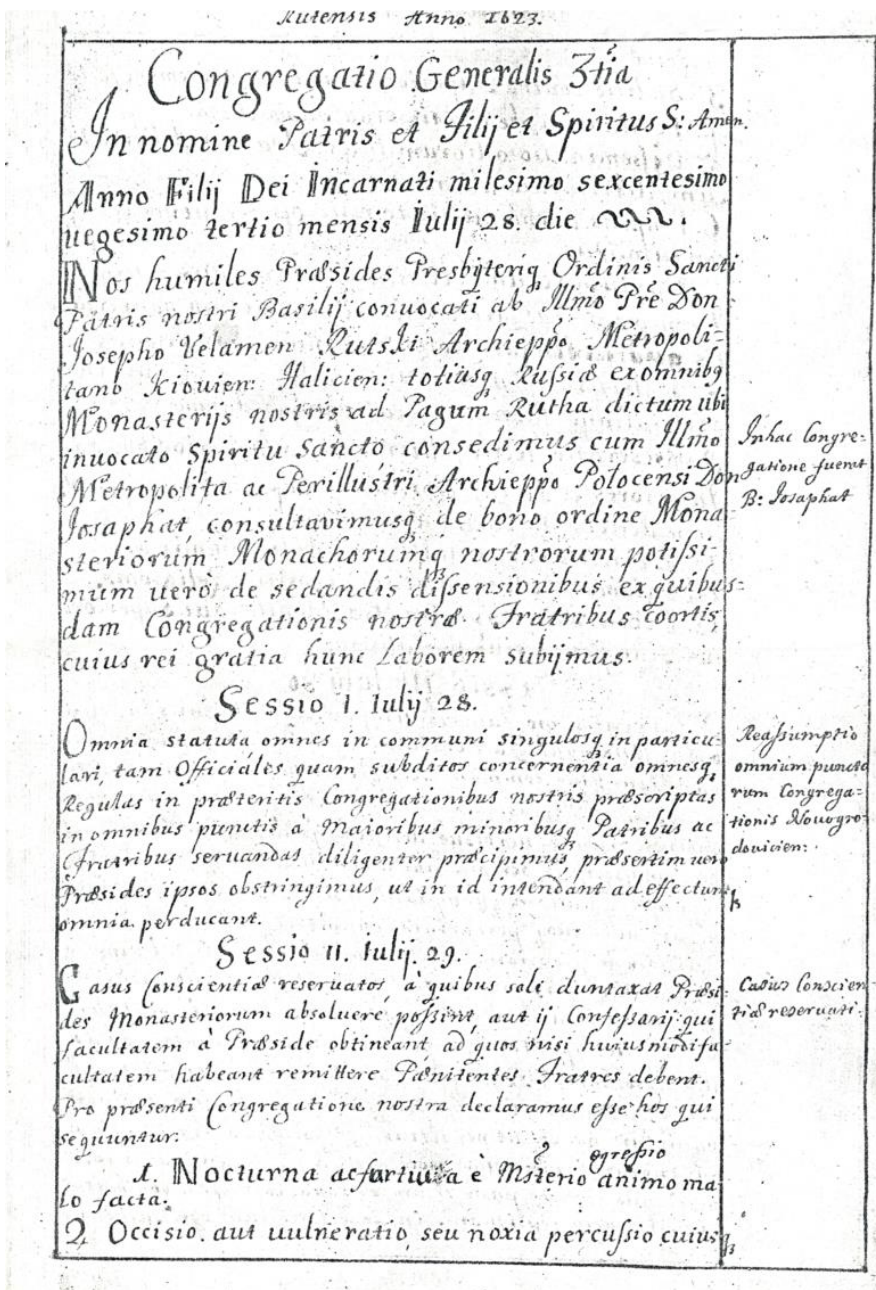 Rutensis Anno 1623.
Congregatio Generalis 3tia
In nomine Patris et Filij et Spiritus S: Amen.
Anno Filij Dei Incarnati milesimo sexcentesimo
uegesimo tertio mensis Iulij 28. die
Nos humiles Præsides Presbyteriq Ordinis Sancti
Patris nostri Basilij convocati ab Illmo Pre Don
Josepho Velamen Rutski Archieppo Metropoli=
tano Kiouien: Halicien: totiusq Russiæ ex omnibq
Monasterijs nostris ad Pagum Rutha dictum ubi
invocato Spiritu Sancto consedimus cum Illmo
Metropolita ac Perillustri Archieppo Polocensi Don
Iosaphat, consultavimusq de bono ordine Mona
steriorum Monachorumq nostrorum potissi-
mum uero de sedandis dissensionibus ex quibus=
dam Congregationis nostræ Fratribus coortis,
cuius rei gratia hunc Laborem subijmus.
Inhac Congre=
gatione fuerat
B: Iosaphat
Sessio I. Iulij 28.
Omnia statuta omnes in communi singulosq in particu-
lari, tam Officiales quam subditos concernentia omnesq
Regulas in præteritis Congregationibus nostris præscriptas
in omnibus punctis à Maioribus minoribusq Patribus ac
Fratribus servandas diligenter præcipimus, præsertim uero
Præsides ipsos obstringimus, ut in id intendant ad effectum
omnia perducant.
Reassumptio
omnium puncto
rum Congrega=
tionis Novogro-
dovicien:
Sessio II. Iulij. 29.
Casus Conscientiæ reservatos, à quibus soli duntaxat Præsi-
des Monasteriorum absolvere possint, aut ij Confessarij qui
facultatem à Præside obtineant, ad quos nisi huiusmodi fa-
cultatem habeant remittere Pænitentes Fratres debent.
Pro præsenti Congregatione nostra declaramus esse hos qui
sequuntur.
Casus Conscien
tiæ reservati.
egressio
1. Nocturna ac furtiua è Msterio animo ma
lo facta.
2. Occisio. aut uulneratio, seu noxia percussio cuiusq